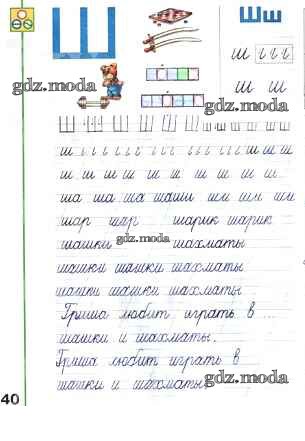 Ш
Шш
gdz.moda
ш
ш ш
gdz.moda
ш ш ш ш ш ш
ша ша ша шаши ши ши ши
шар шар шарик шарик
шашки gdz.moda шахматы
шашки шашки шахматы
шашки шашки шахматы
Гриша любит играть в
шашки и шахматы.
Гриша любит играть в
шашки и шахматы.
gdz.moda
40